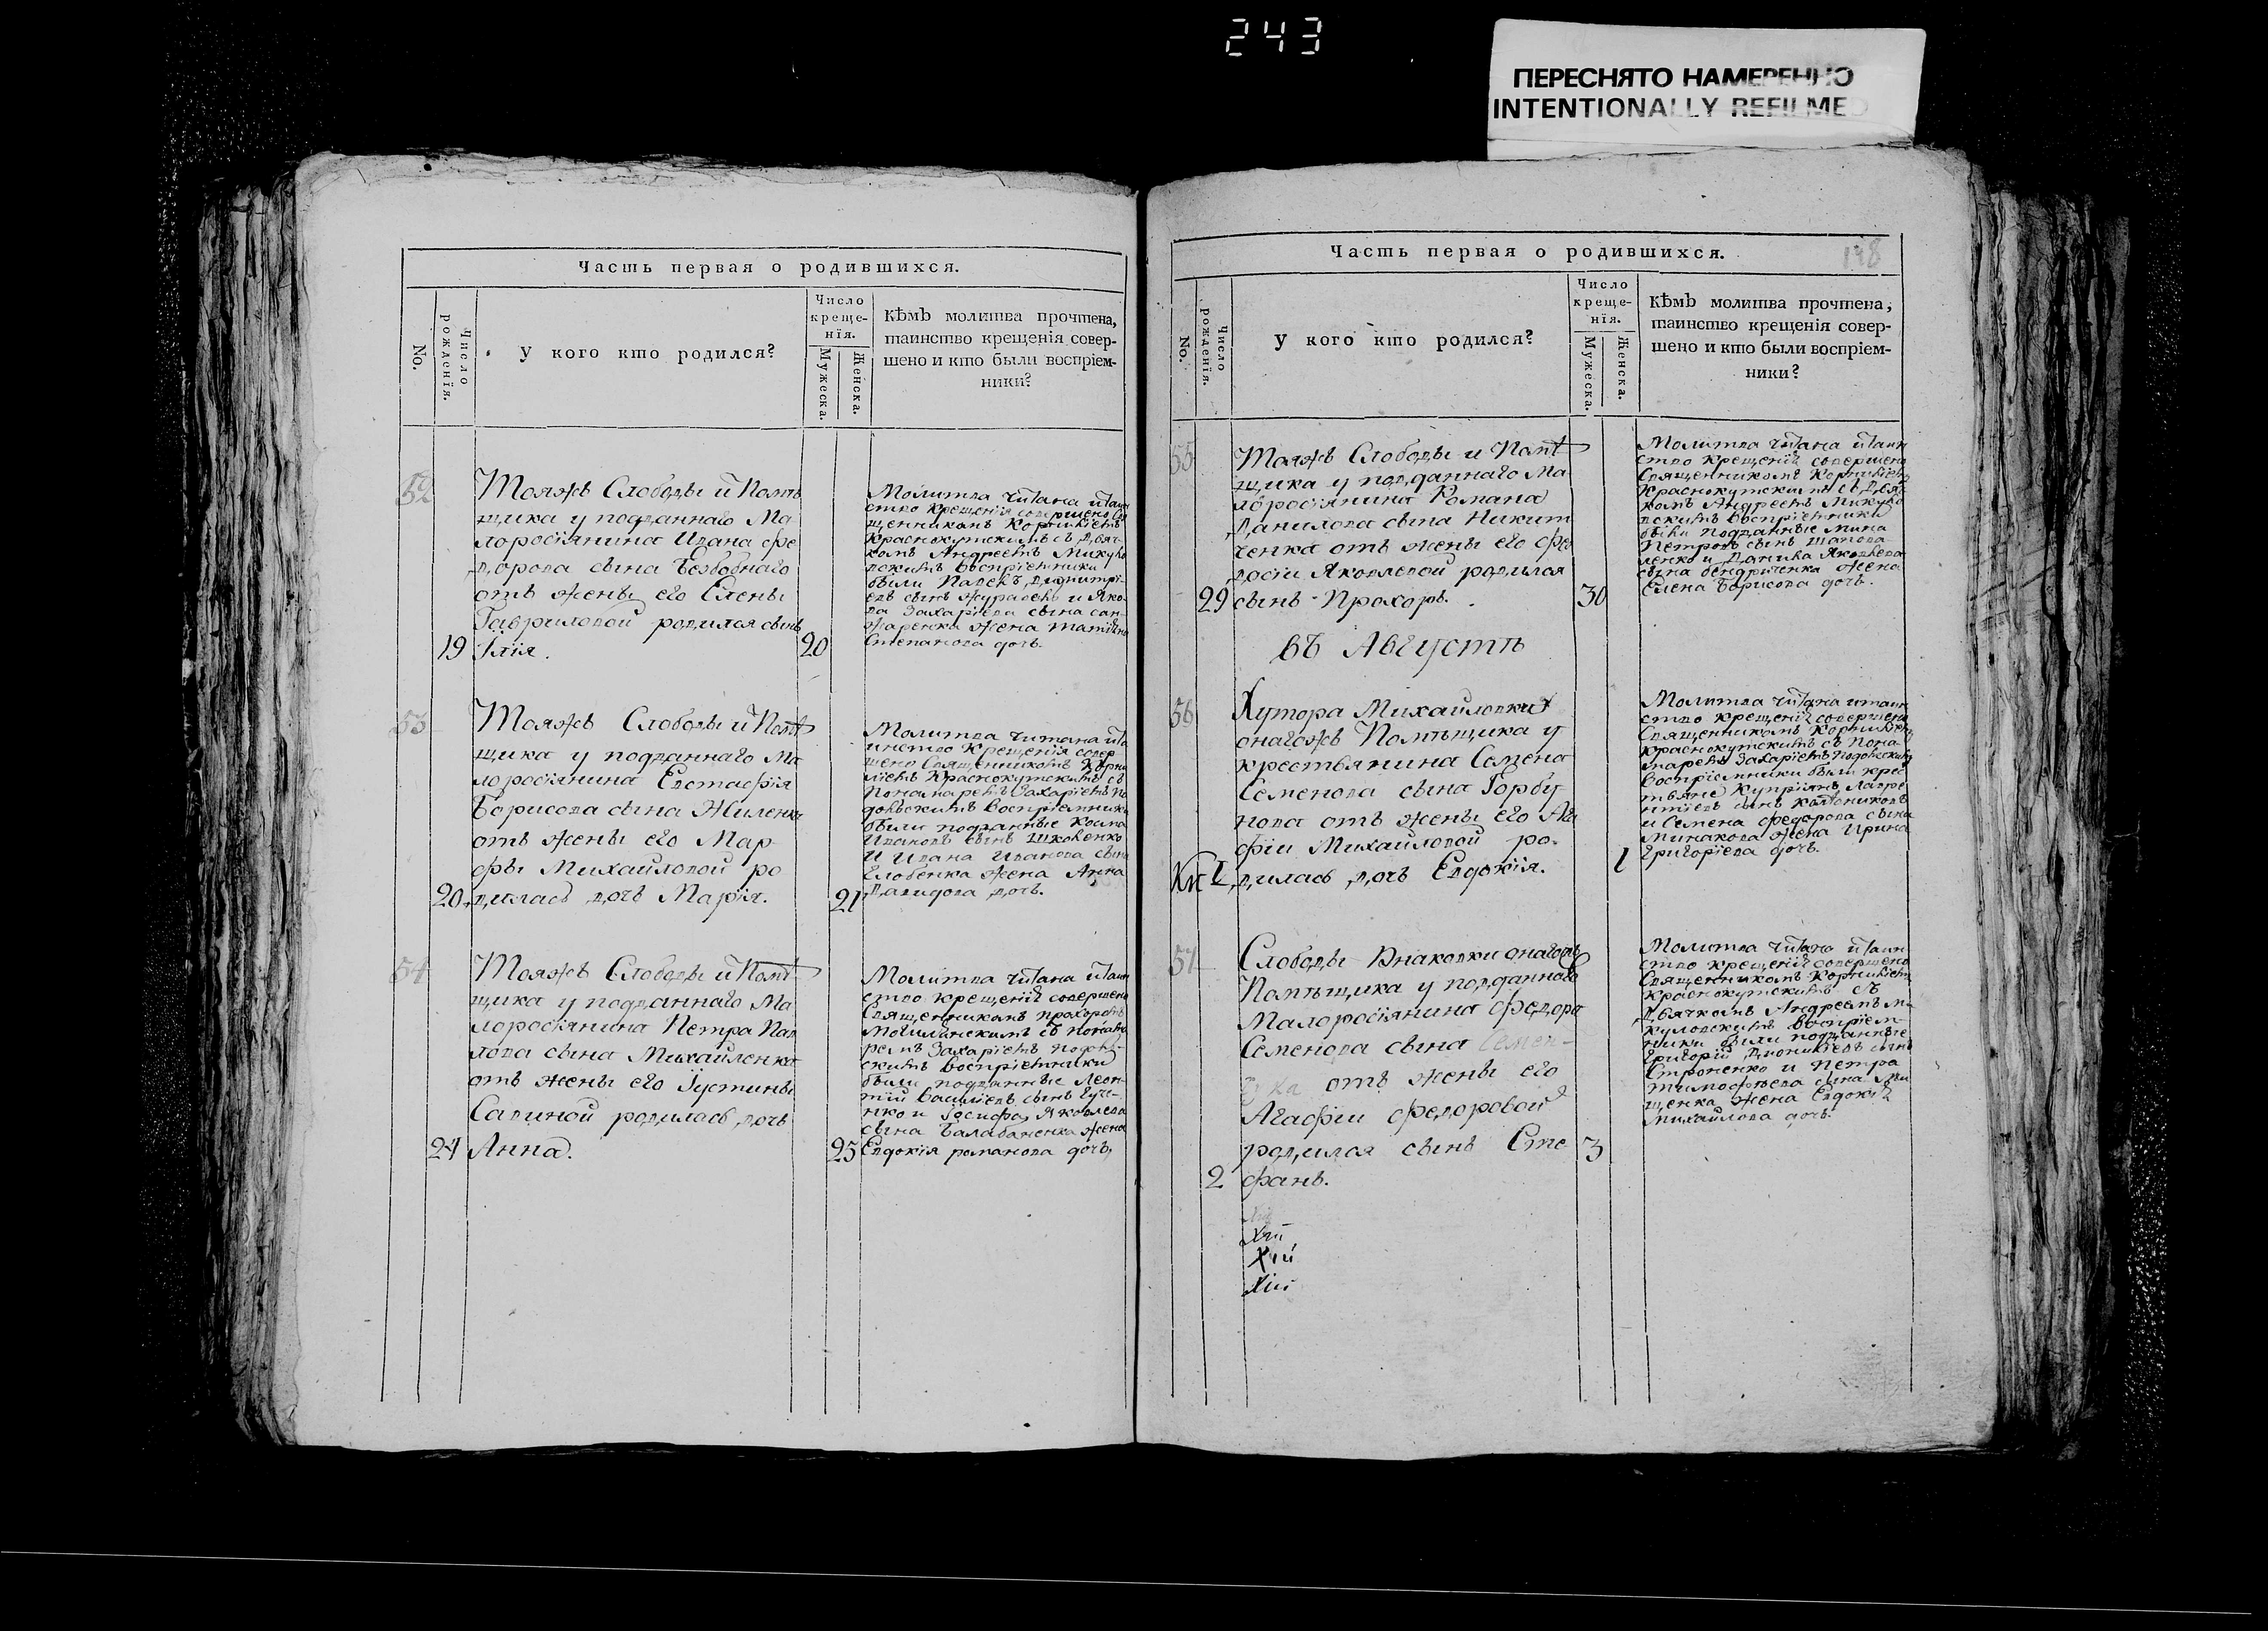 243
ПЕРЕСНЯТО НАМЕРЕННО
INTENTIONALLY REFILMED
Часть первая о родившихся.
No.
Число рожденія.
У кого кто родился?
Число креще-
нія.
Мужеска.
Женска.
Кѣмъ молитва прочтена,
таинство крещенія совер-
шено и кто были воспріем-
ники?
52
Тояжъ Слободы и Помѣ
щика у подданнаго Ма
лоросіянина Ивана Фе
дорова сына Безбобнаго
отъ жены его Елены
Гавриловой родился сынъ
19 Илія. 20
Молитва читана и таин
ство крещенія совершено Свя
щенникомъ Корниліемъ
Краснокутскимъ съ Дьяч-
комъ Андреемъ Микуло
вскимъ воспріемники
были Павелъ Димитрі-
евъ сынъ Журавель и Яко-
ва Захаріева сына сан-
жаренка жена татіяна
Степанова дочь.
53
Тояжъ Слободы и Помѣ
щика у подданнаго Ма
лоросіянина Евстафія
Борисова сына Жиленка
отъ жены его Мар-
фы Михайловой ро
20. дилась дочь Марія. 21
Молитва читана и та
инство крещенія совер
шено Священникомъ Корни
ліемъ Краснокутскимъ съ
Понамаремъ Захаріемъ По
дольскимъ воспріемники
были подданные Косма
Ивановъ сынъ Шковенко
и Ивана Иванова сына
Еловенка жена Анна
Давидова дочь.
54
Тояжъ Слободы и Помѣ
щика у подданнаго Ма
лоросіянина Петра Пав
лова сына Михайленка
отъ жены его Іустины
Савиной родилась дочь
24 Анна. 25
Молитва читана и таин
ство крещенія совершено
Священникомъ Прохоромъ
Могилянскимъ съ понама
ремъ Захаріемъ Подоль-
скимъ воспріемники
были подданные Леон-
тій Василіевъ сынъ Гуче-
нко и Іосифа Яковлева
сына Балабаненка жена
Евдокія романова дочь,
Часть первая о родившихся.
198
No.
Число рожденія.
У кого кто родился?
Число
креще-
нія.
Мужеска.
Женска.
Кѣмъ молитва прочтена,
таинство крещенія совер-
шено и кто были воспріем-
ники?
55
Тояжъ Слободы и Помѣ
щика у подданнаго Ма
лоросіянина Романа
Данилова сына Никит
ченка отъ жены его Фео
досіи Яковлевой родился
29 сынъ Прохоръ. 30
Молитва читана и таин
ство крещенія совершено
Священникомъ Корниліемъ
Краснокутскимъ съ Дьяч
комъ Андреемъ Микуло
вскимъ воспріемники
были подданные мина
Петровъ сынъ Шапова
ленко и Данила Яковлева
сына бендриченка жена
Елена Борисова дочь.
въ Августѣ
56
Хутора Михайловки
онагожъ Помѣщика у
крестьянина Семена
Семенова сына Горбу
нова отъ жены его Ага
фіи Михайловой ро-
дилась дочь Евдокія. 1
Молитва читана и таин
ство крещенія совершено
Священникомъ Корниліемъ
Краснокутскимъ съ Пона-
маремъ Захаріемъ Подольскимъ
воспріемники были крес
тьяне Купріянъ Лавре
нтіевъ сынъ Колтониковъ
и Семена Федорова сына
Минакова жена Ирина
Григоріева дочь.
57
Слободы Внаковки онагожъ
Помѣщика у подданнаго
Малоросіянина Федора
Семенова сына Семен-
ка отъ жены его
Агафіи Федоровой
родился сынъ Сте 3
2 фанъ.
Молитва читана и таин
ство крещенія совершено
Священникомъ Корниліемъ
Краснокутскимъ съ
Дьячкомъ Андреемъ Ми
куловскимъ воспріем-
ники были подданные
Григорій Діонисіевъ сынъ
Строненко и Петра
тимофѣева сына Ми
щенка жена Евдокія
Михайлова дочь.